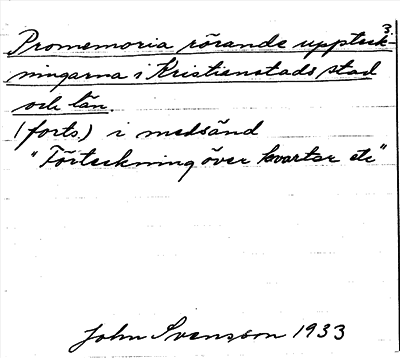 3.
Promemoria rörande uppteck-
ningarna i Kristianstads stad
och län.
(forts.) i medsänd
"Förteckning över kvartar etc"
John Svensson 1933